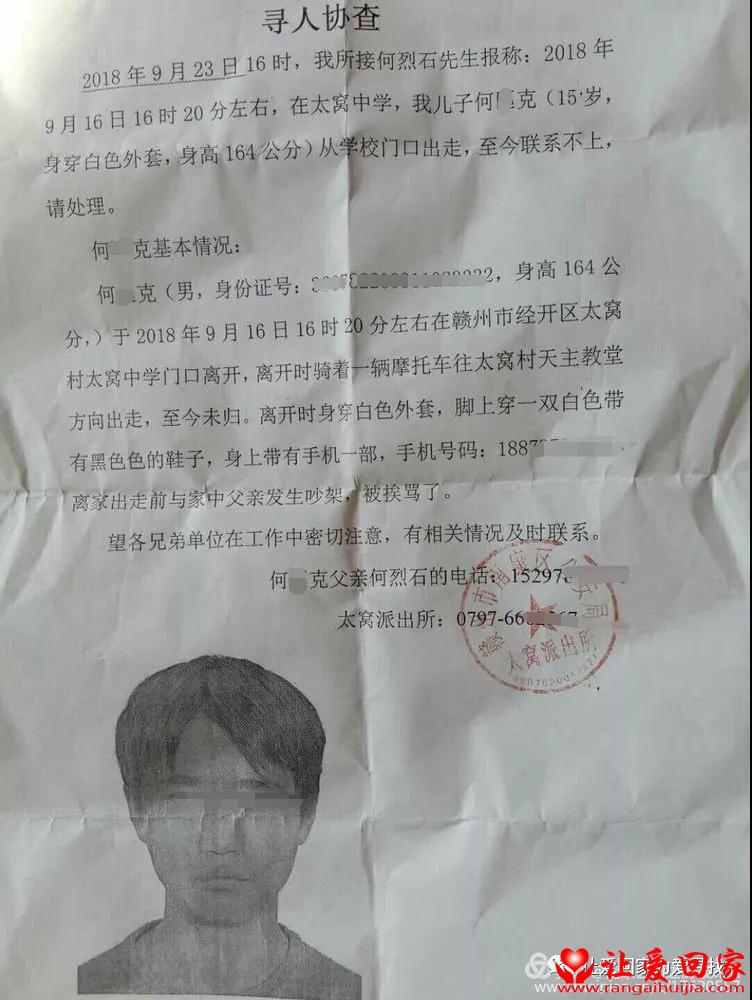 寻人协查
2018年9月23日16时，我所接何烈石先生报称：2018年
9月16日16时20分左右，在太窝中学，我儿子何 克（15岁，
身穿白色外套，身高164公分）从学校门口出走，至今联系不上，
请处理。
何 克基本情况：
何 克（男，身份证号： ，身高164公
分，）于2018年9月16日16时20分左右在赣州市经开区太窝
村太窝中学门口离开，离开时骑着一辆摩托车往太窝村天主教堂
方向出走，至今未归。离开时身穿白色外套，脚上穿一双白色带
有黑色色的鞋子，身上带有手机一部，手机号码：1887 ，
离家出走前与家中父亲发生吵架，被挨骂了。
望各兄弟单位在工作中密切注意，有相关情况及时联系。
何 克父亲何烈石的电话：15297
太窝派出所：0797-66
太窝派出所
让爱回家
www.rangaihuijia.com